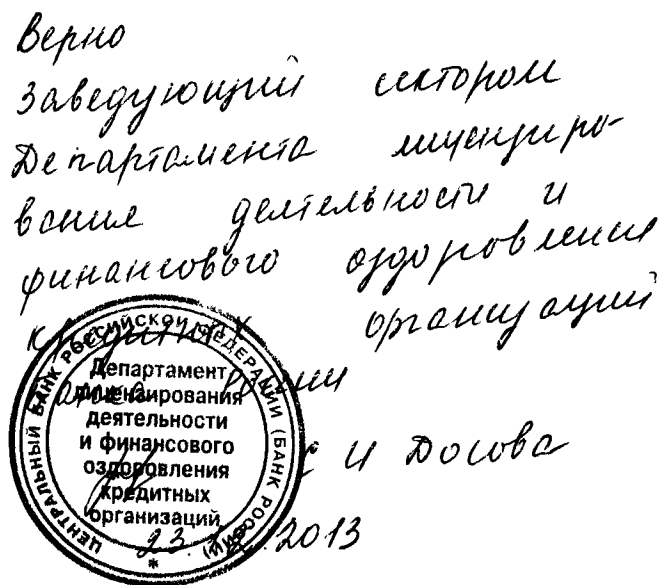 Верно
Заведующий сектором
Департамента лицензиро-
вания деятельности и
финансового оздоровления
кредитных организаций
Банка России
И Досова
2013
ЦЕНТРАЛЬНЫЙ БАНК РОССИЙСКОЙ ФЕДЕРАЦИИ (БАНК РОССИИ)
*
Департамент
лицензирования
деятельности
и финансового
оздоровления
кредитных
организаций